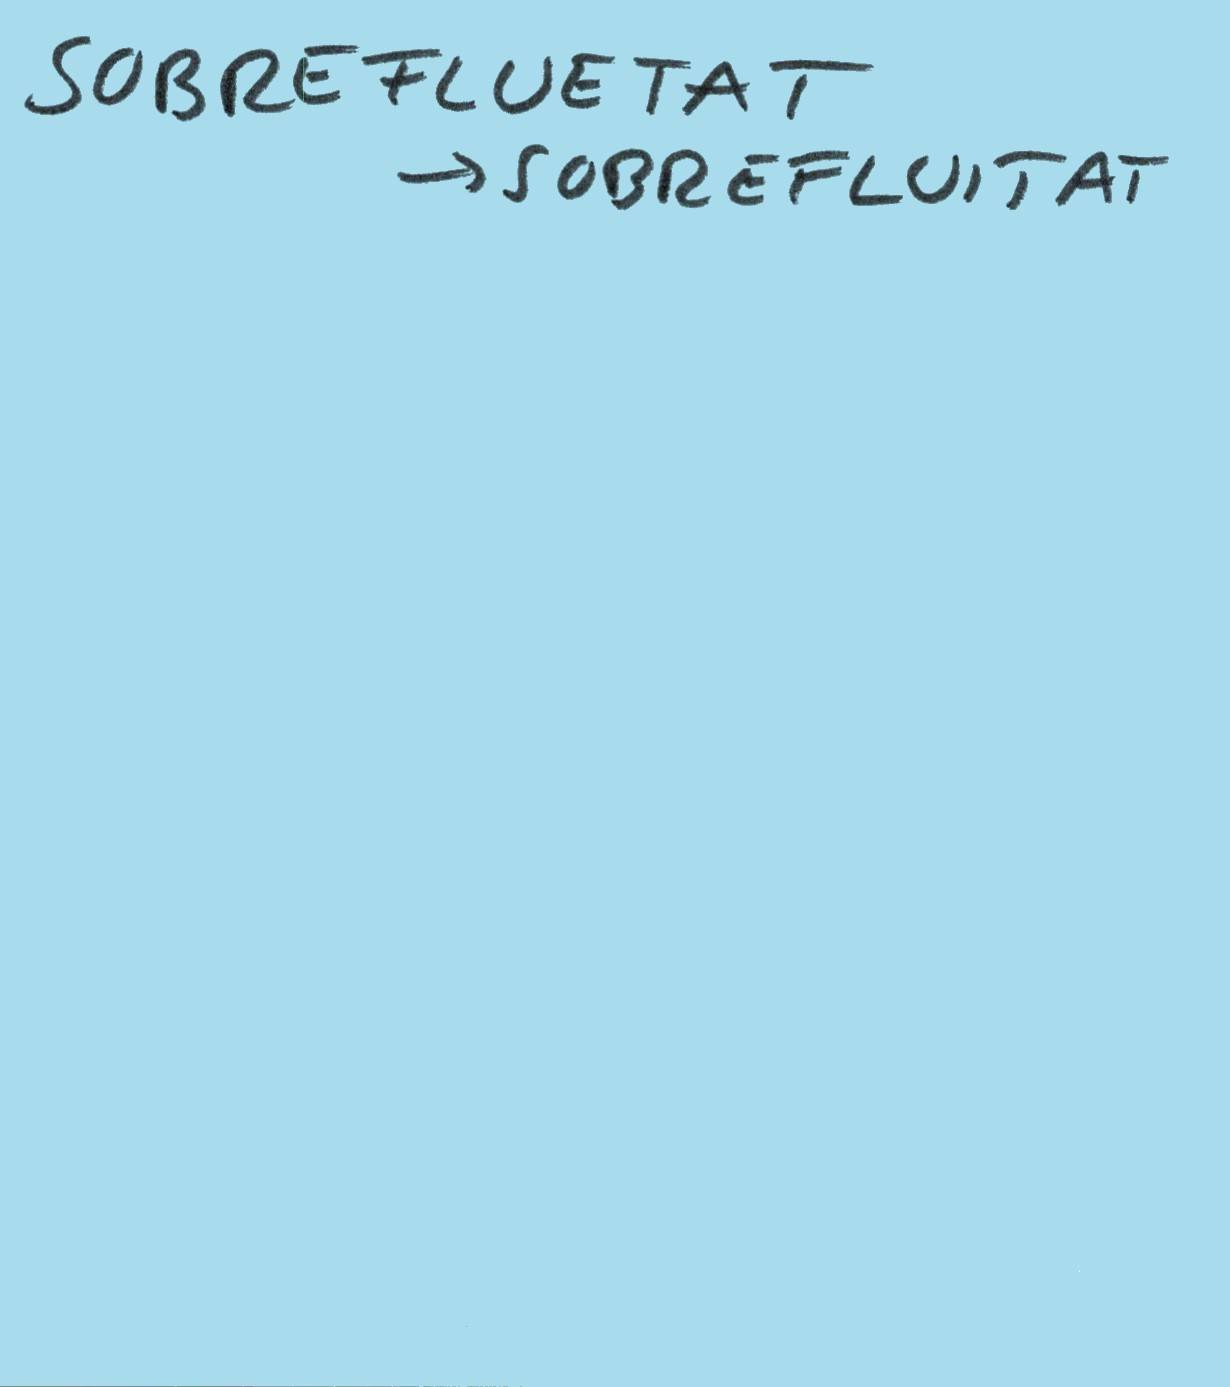 SOBREFLUETAT
→ SOBREFLUITAT